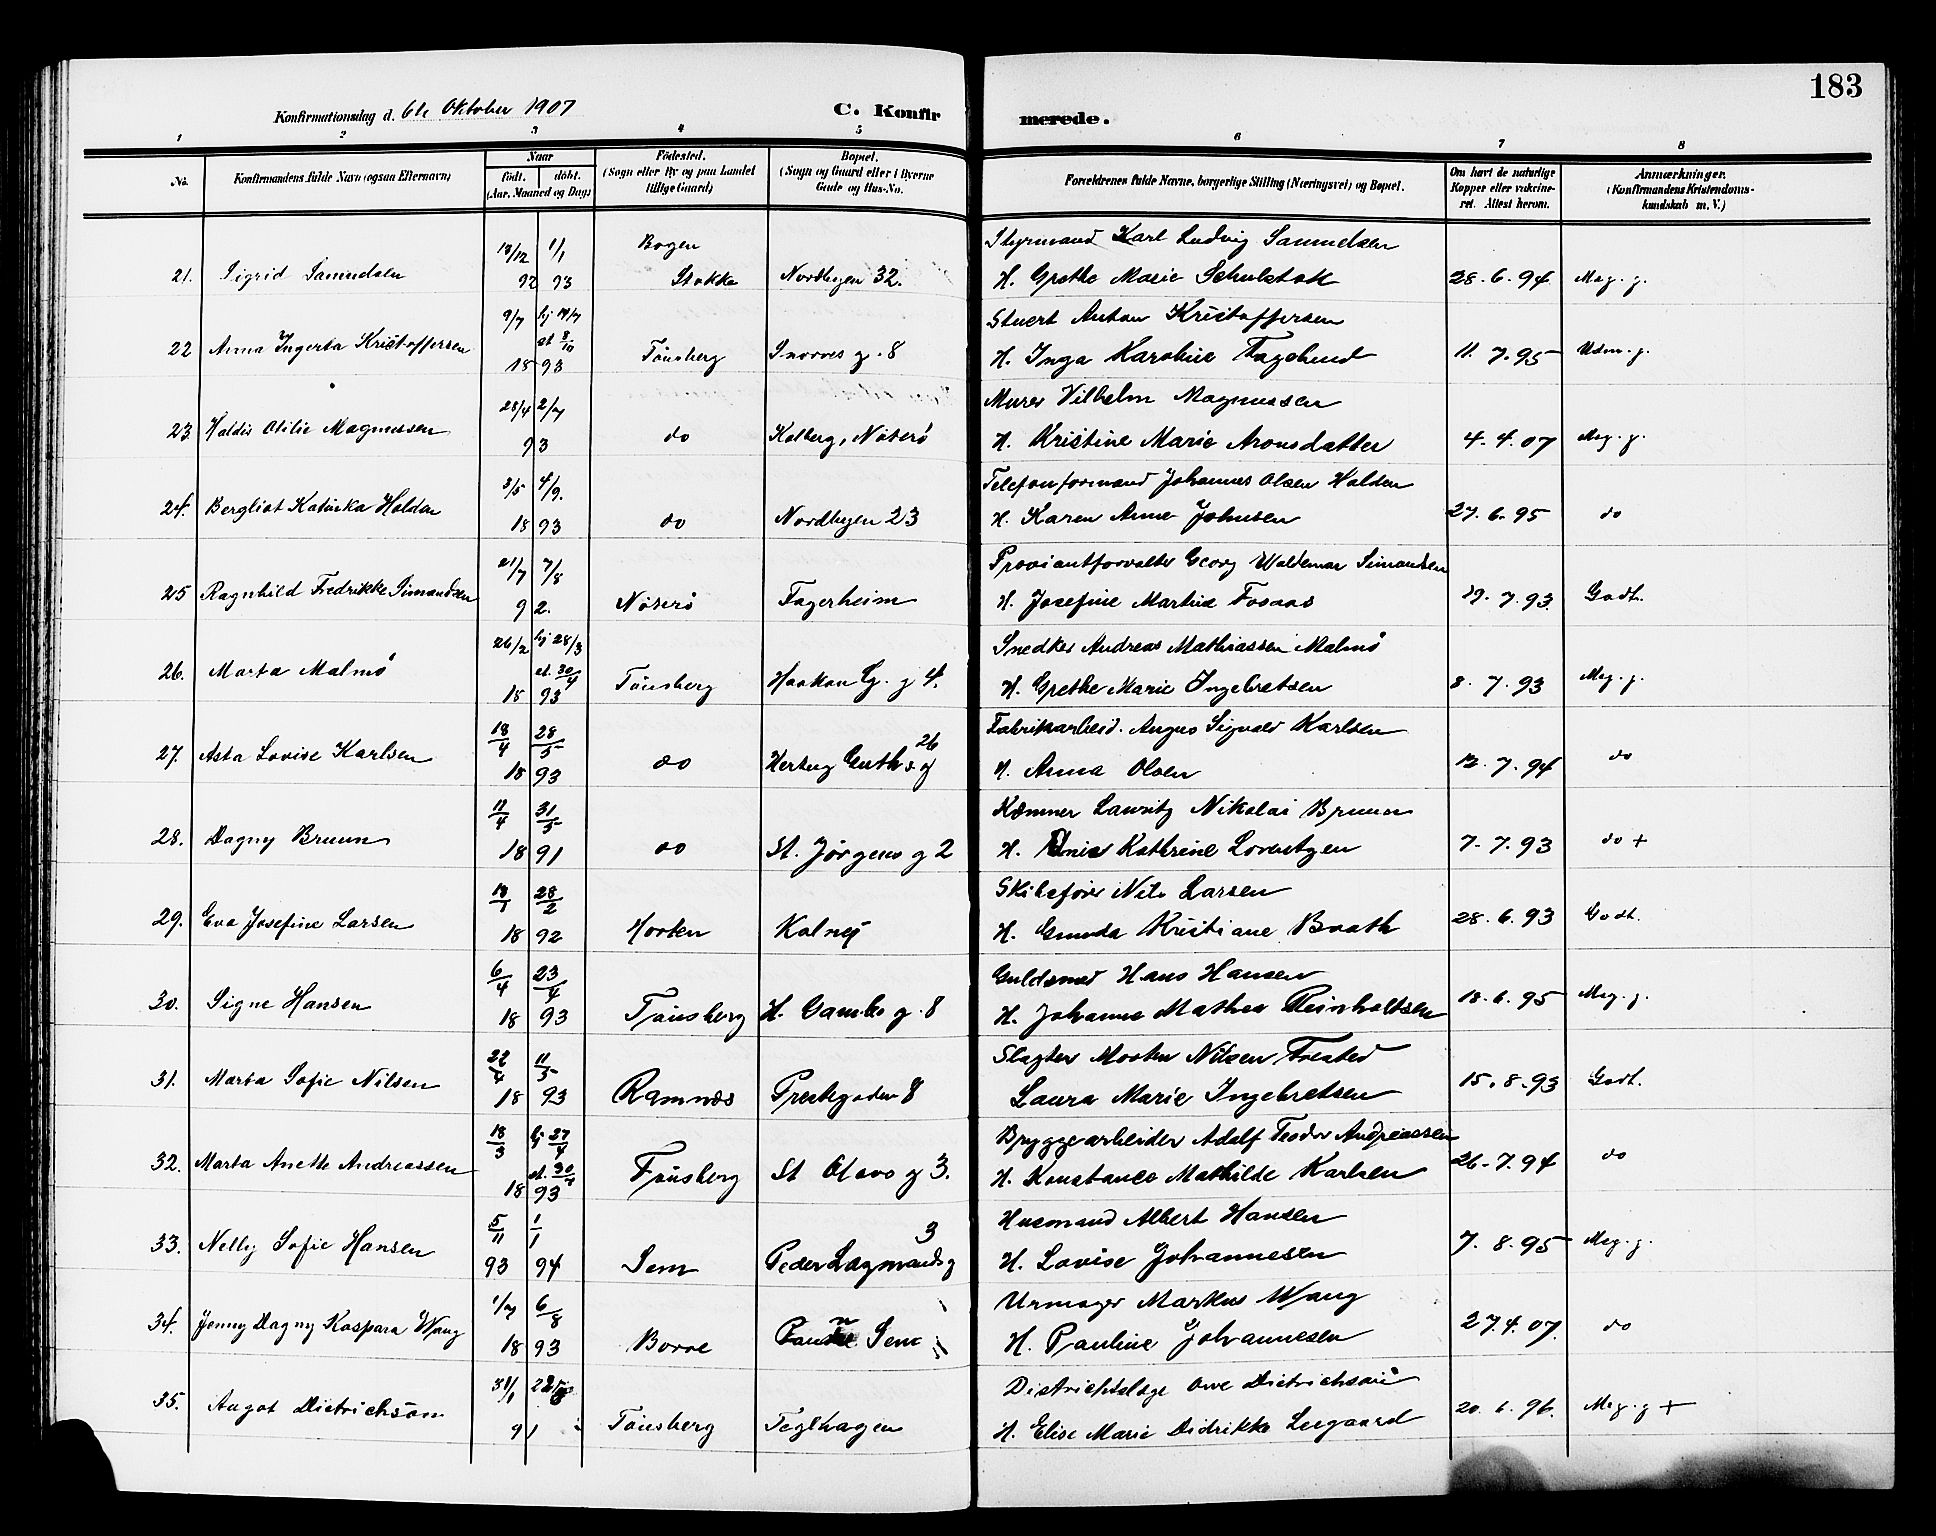 183
Konfirmationsdag d. 6te Oktober 1907
C. Konfirmerede.
1 2 3 4 5 6 7 8
No. Konfirmandens fulde Navn (ogsaa Efternavn) Naar født. døbt. (Aar, Maaned og Dag) Fødested. (Sogn eller By og paa Landet tillige Gaard) Bopæl. (Sogn og Gaard eller i Byerne Gade og Hus-No. Forældrenes fulde Navne, borgerlige Stilling (Næringsvei) og Bopæl. Om havt de naturlige Kopper eller vakcineret. Attest herom. Anmærkninger. (Konfirmandens Kristendomskundskab m. V.)
18/12 1/1 Bogen Styrmand Karl Ludvig Samuelsen
21. Sigrid Samuelsen 92 93 Stokke Nordbyen 32. H. Grethe Marie Schulstok 28.6.94 Meg. g.
9/7 hj 14/7 st 8/10 Stuert Anton Kristoffersen
22 Anna Ingerta Kristoffersen 18 93 Tönsberg Snorres g. 8 H. Inga Karoline Fagelund 11.7.95 Udm. g.
28/4 2/7 Murer Vilhelm Magnussen
23. Haldis Otilie Magnussen 93 do Kolberg, Nøterø H. Kristine Marie Aronsdatter 4.4.07 Meg. g.
3/5 4/9. Telefonformand Johannes Olsen Holden
24. Bergliot Katinka Holden 18 93 do Nordbyen 23 H. Karen Anne Johnsen 27.6.95 do
21/7 7/8 Proviantforvalter Georg Waldemar Simonsen
25 Ragnhild Fredrikke Simonsen 92. Nøterø Fagerheim H. Josefine Martine Fosaas 19.7.93. Godt.
26/2 hj 28/3 st. 30/4 Snedker Andreas Mathiassen Malmö
26. Marta Malmö 18 93 Tönsberg Haakon G. g 4. H. Grethe Marie Ingebretsen 8.7.93 Meg. g.
18/4 28/5 Fabrikarbeid. Angus Sigvald Karlsen
27. Asta Lovise Karlsen 18 93 do Herberg Guths g 26 H. Anna Olsen 12.7.94 do
11/4 31/5 Kæmner Lauritz Nikolai Bruun
28. Dagny Bruun 18 91 do St. Jørgens g 2 H. Kathrine Lorentzen 7.7.93 do +
18/1 28/2 Skibsfører Nils Larsen
29. Eva Josefine Larsen 18 92 Horten Kalnes H. Gunda Kristiane Braath 28.6.93 Godt.
6/4 23/4 Guldsmed Hans Hansen
30. Signe Hansen 18 93 Tönsberg H. Gamles g. 8 H. Johanne Mathea Reinholtsen 18.6.95 Meg. g.
22/4 11/5 Slagter Morten Nilsen Frested
31. Marta Sofie Nilsen 18 93 Ramnæs Prestegaden 8 Laura Marie Ingebretsen 15.8.93 Godt.
18/3 hj 27/4 st. 30/4 Bryggearbeider Adolf Teodor Andreassen
32. Marta Anette Andreassen 18 93 Tönsberg St Olavs g 3. H. Konstance Mathilde Karlsen 26.7.94 do
5/11 1/1 Husmand Albert Hansen
33. Nelly Sofie Hansen 93 94 Sem Peder Lagmands g 3 H. Lovise Johannesen 7.8.95 Meg. g.
1/7 6/8 Urmager Markus Wang
34. Jenny Dagny Kaspara Wang 18 93 Borre Sem H. Pauline Johannesen 27.4.07. do
31/1 Distriktslæge Owe Dietrichson
35. Aagot Dietrichson 91 Tönsberg Teglhagen H. Elise Marie Didrikke Leegaard 20.6.96. Meg. g +